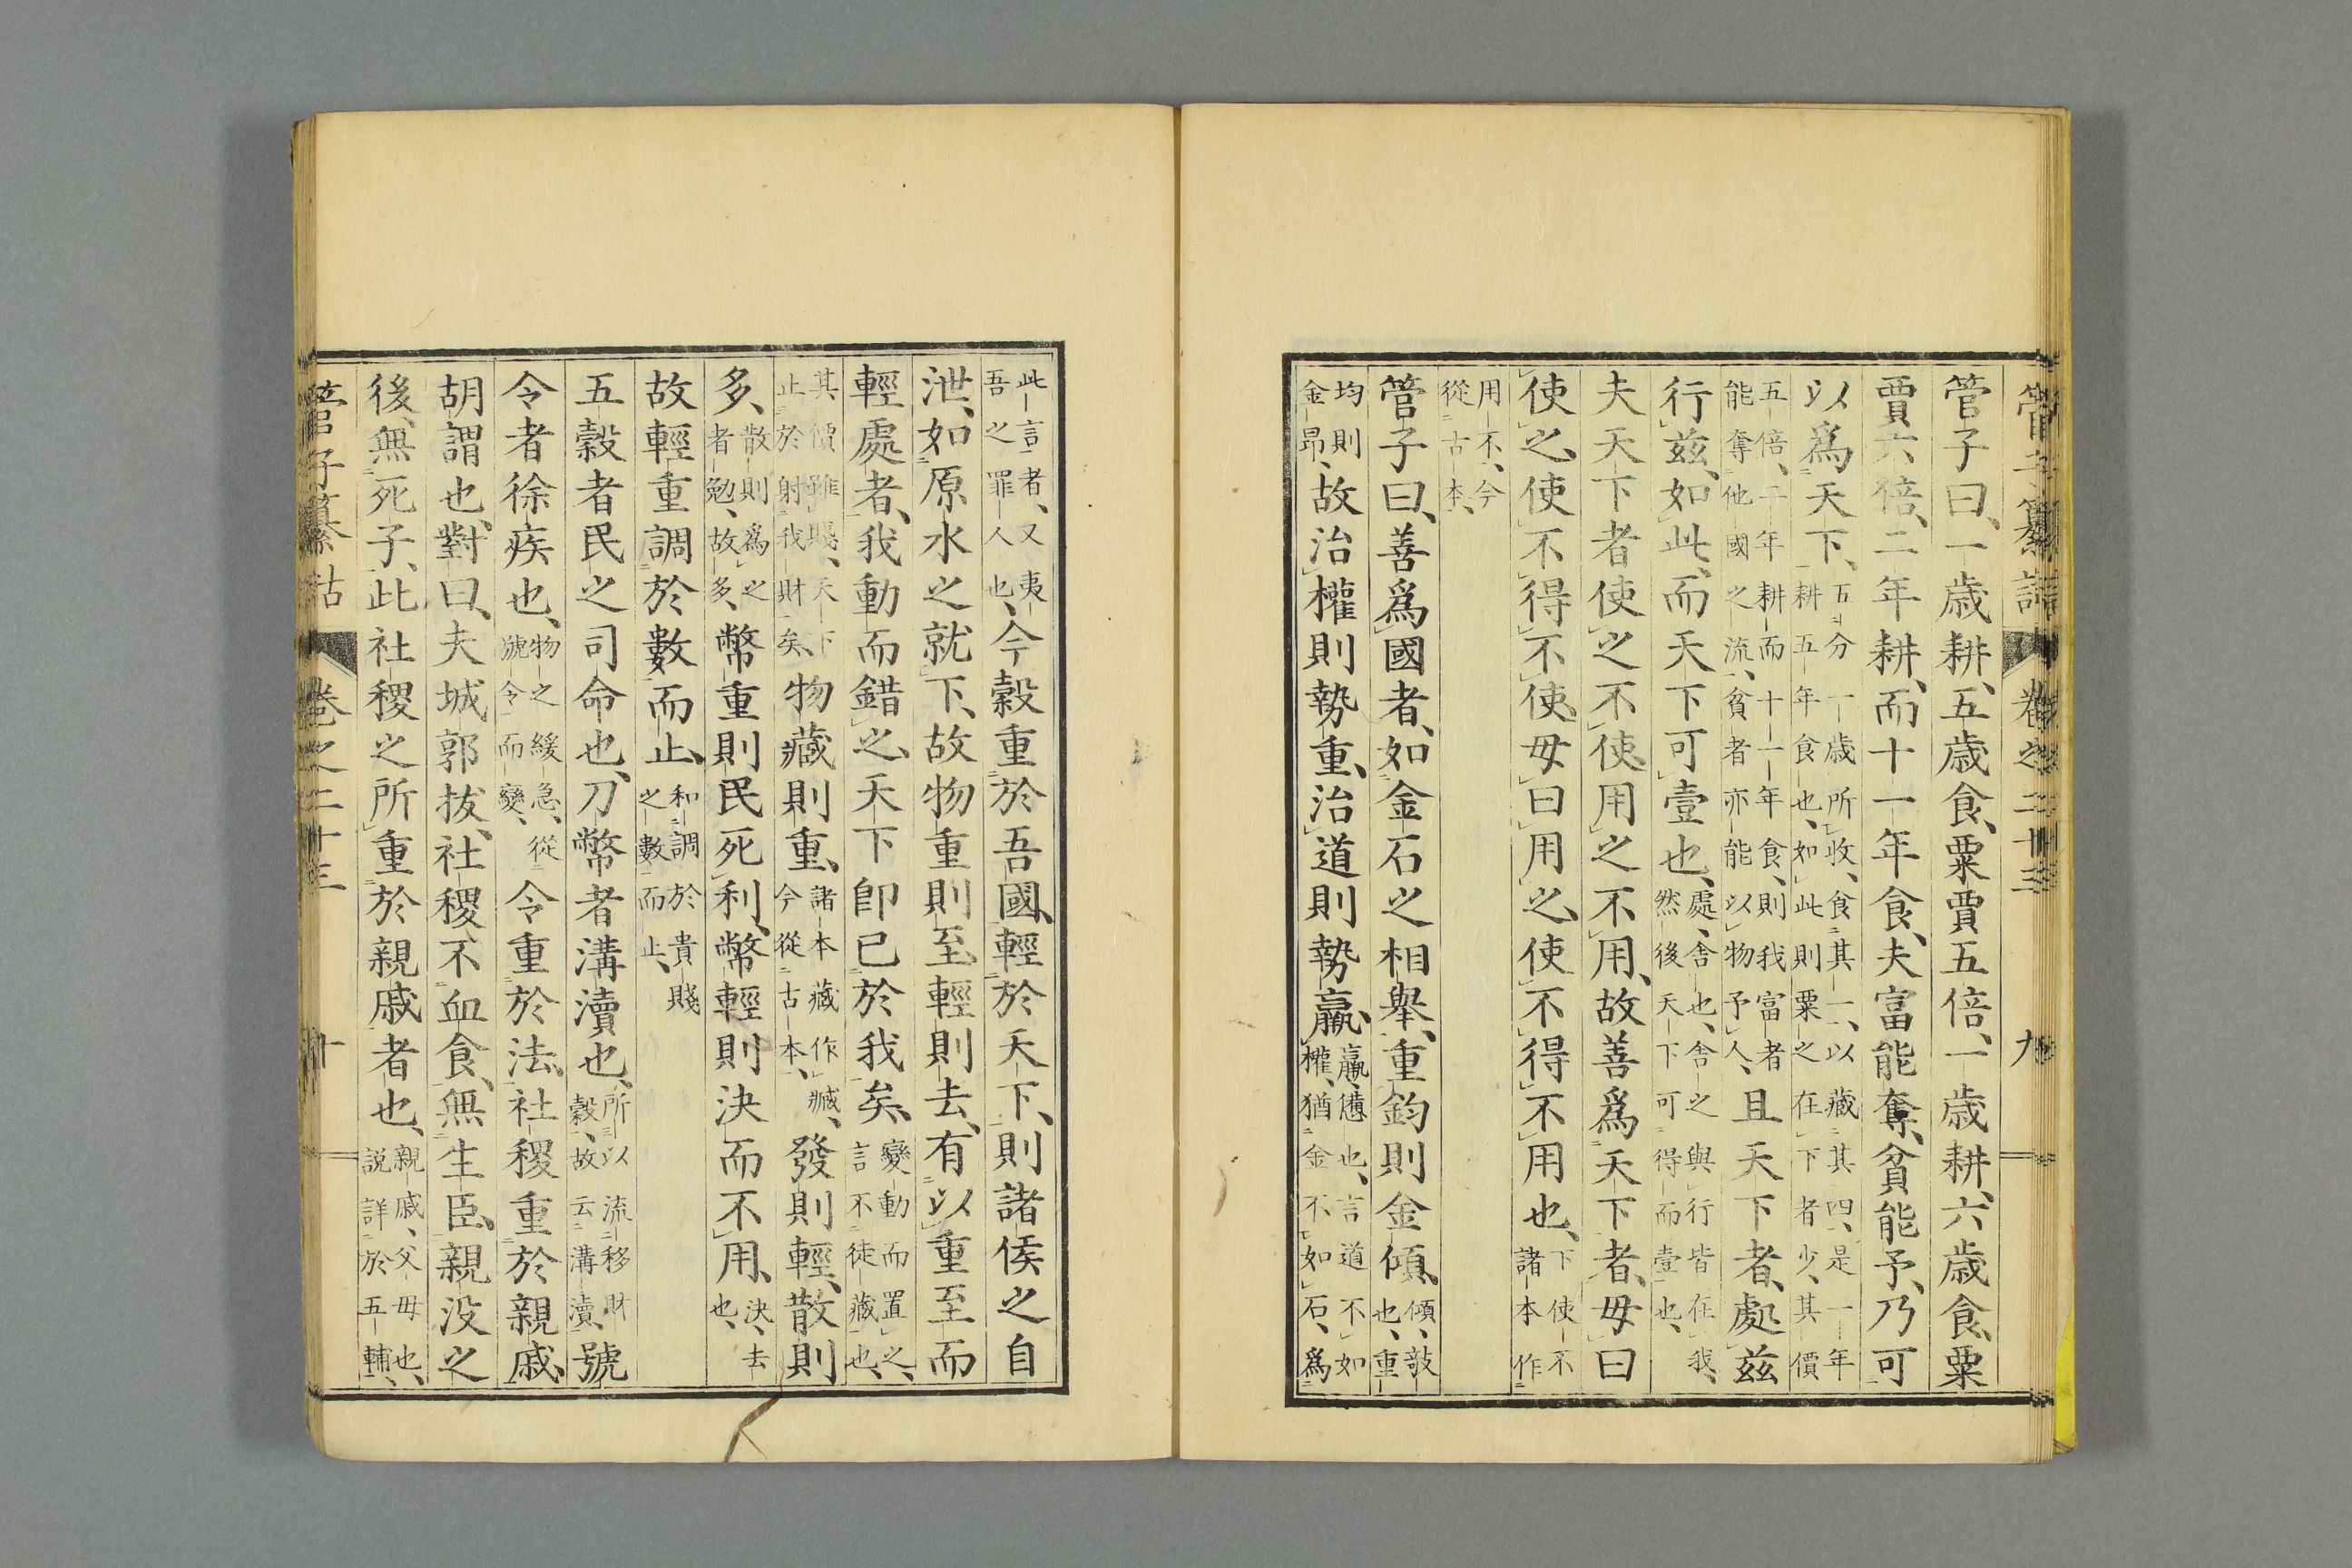 管子纂詁 卷之二十三 九
管子曰、一歳耕、五歳食、粟賈五倍、一歳耕、六歳食、粟
賈六倍、二年耕、而十一年食、夫富能奪、貧能予、乃可
以爲天下、五分一歳所收、食其一、以藏其四、是一年耕五年食也、如此則粟之在下者少、其價
五倍、二年耕而十一年食、則我富者能奪他國之流、貧者亦能以物予人、且天下者、處茲
行茲、如此、而天下可壹也、處、舍也、舍之與行皆在我、然後天下可得而壹也、
夫天下者使之不使、用之不用、故善爲天下者、毋曰
使之、使不得不使、毋曰用之、使不得不用也、下使不諸本作
用不、今從古本、
管子曰、善爲國者、如金石之相舉、重鈞則金傾、傾、敧也、重
均則金昂、故治權則勢重、治道則勢羸、羸、憊也、言道不如權、猶金不如石、爲
此言者、又夷吾之罪人也、今穀重於吾國、輕於天下、則諸侯之自
泄、如原水之就下、故物重則至、輕則去、有以重至而
輕處者、我動而錯之、天下即已於我矣、變動而置之、言不徒藏也、
其價雖賤、天下止於射我財矣、物藏則重、諸本藏作臧、今從古本、發則輕、散則
多、散則爲之者勉、故多、幣重則民死利、幣輕則決而不用、決、去也、
故輕重調於數而止、和調於貴賤之數而止、
五穀者民之司命也、刀幣者溝瀆也、所以流移財穀、故云溝瀆、號
令者徐疾也、物之緩急、從號令而變、令重於法、社稷重於親戚、
胡謂也、對曰、夫城郭拔、社稷不血食、無生臣、親沒之
後、無死子、此社稷之所重於親戚者也、親戚、父母也、説詳於五輔、
管子纂詁 卷之二十三 十